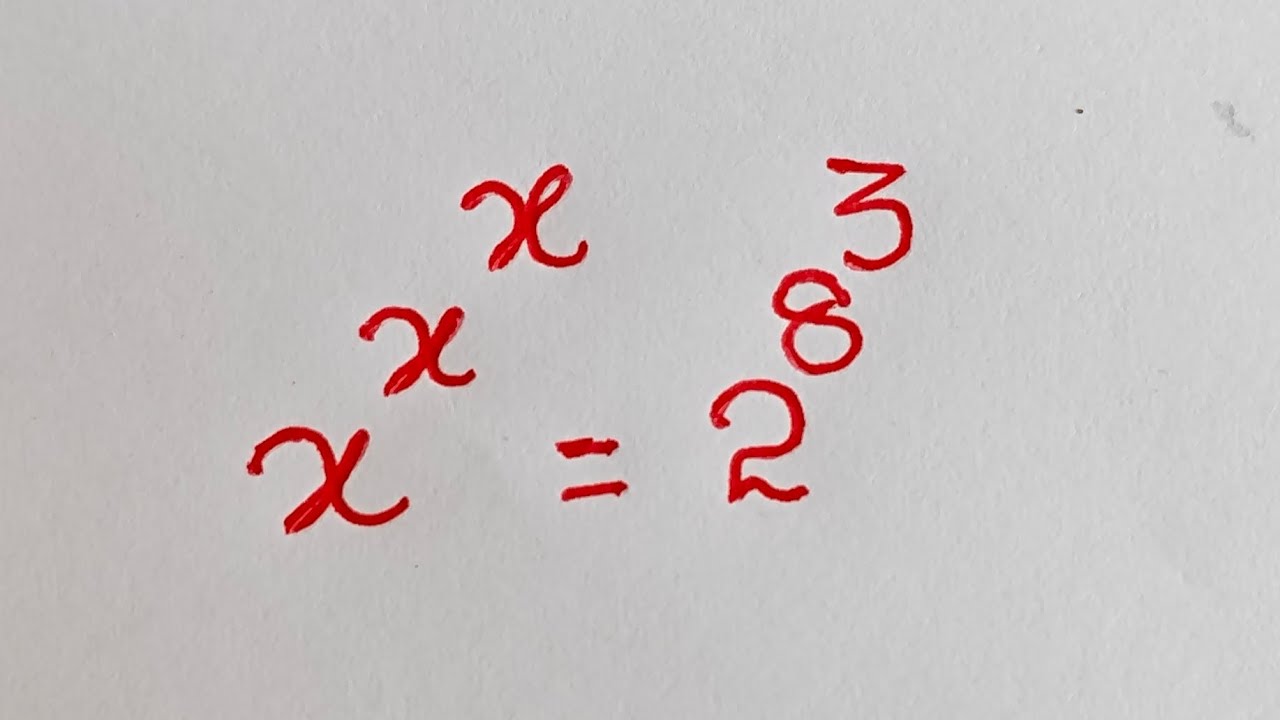 x^{x^{x}} = 2^{8^{3}}